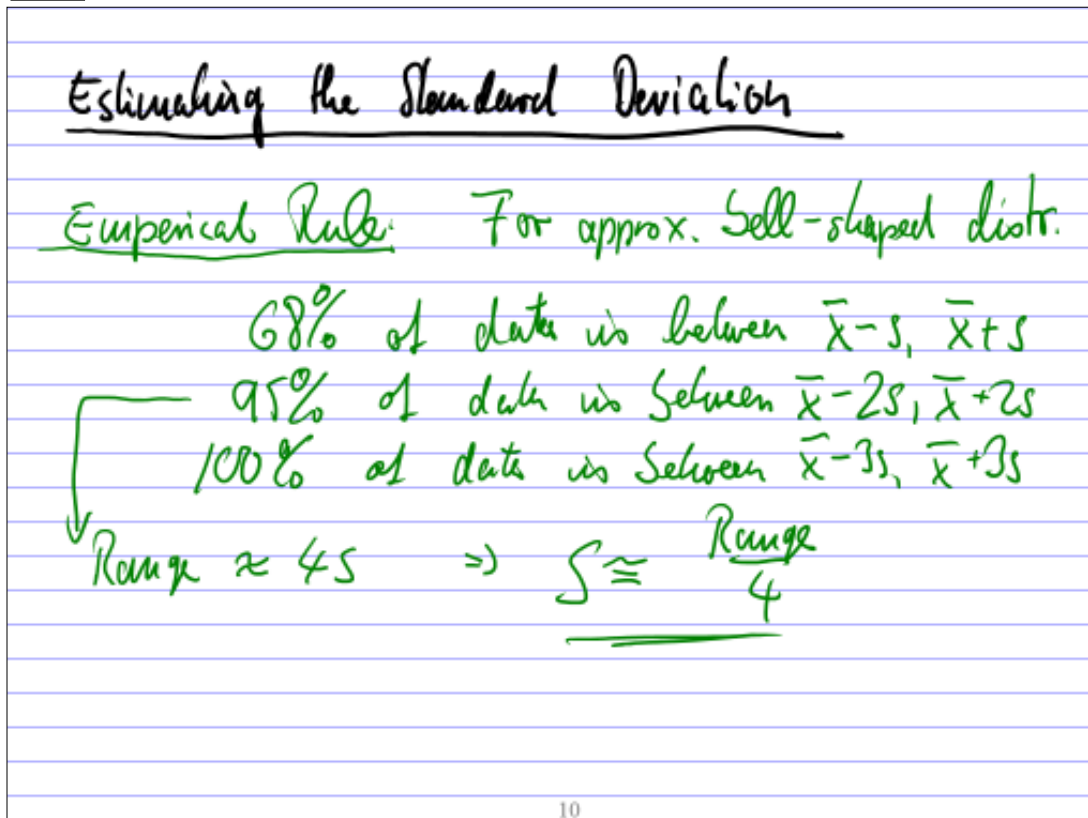 Estimating the Standard Deviation
Emperical Rule: For approx. bell-shaped distr.
68% of data is between x̄-s, x̄+s
95% of data is between x̄-2s, x̄+2s
100% of data is between x̄-3s, x̄+3s
Range ≈ 4s ⇒ s ≅ Range/4
10